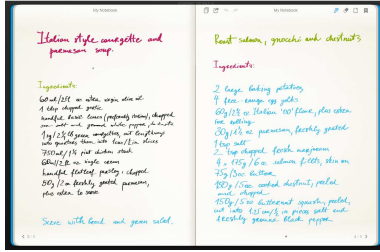 My Notebook
Italian style courgette and
parmesan soup.
Ingredients:
60ml/2fl oz extra virgin olive oil
1 tbsp chopped garlic
handful basil leaves (preferably torn), chopped
sea salt and ground white pepper, to taste
1kg/2¼lb green courgettes, cut lengthways
into quarters then into 1cm/½in slices
750ml/1¼ pint chicken stock
60ml/2fl oz single cream
handful flatleaf parsley, chopped
50g/2oz freshly grated parmesan,
plus extra to serve
Serve with bread and green salad.
My Notebook
Roast salmon, gnocchi and chestnuts
Ingredients:
2 large baking potatoes
4 free-range egg yolks
60g/2½oz Italian '00' flour, plus extra
for rolling
30g/1¼oz parmesan, freshly grated
1 tsp
2 tbsp chopped fresh marjoram
4 x 175g/6oz salmon fillets, skin on
75g/3oz butter
150g/5oz cooked chestnuts, peeled
and chopped
150g/5oz butternut squash, peeled,
cut into 1.25cm/½in pieces salt and
freshly ground black pepper